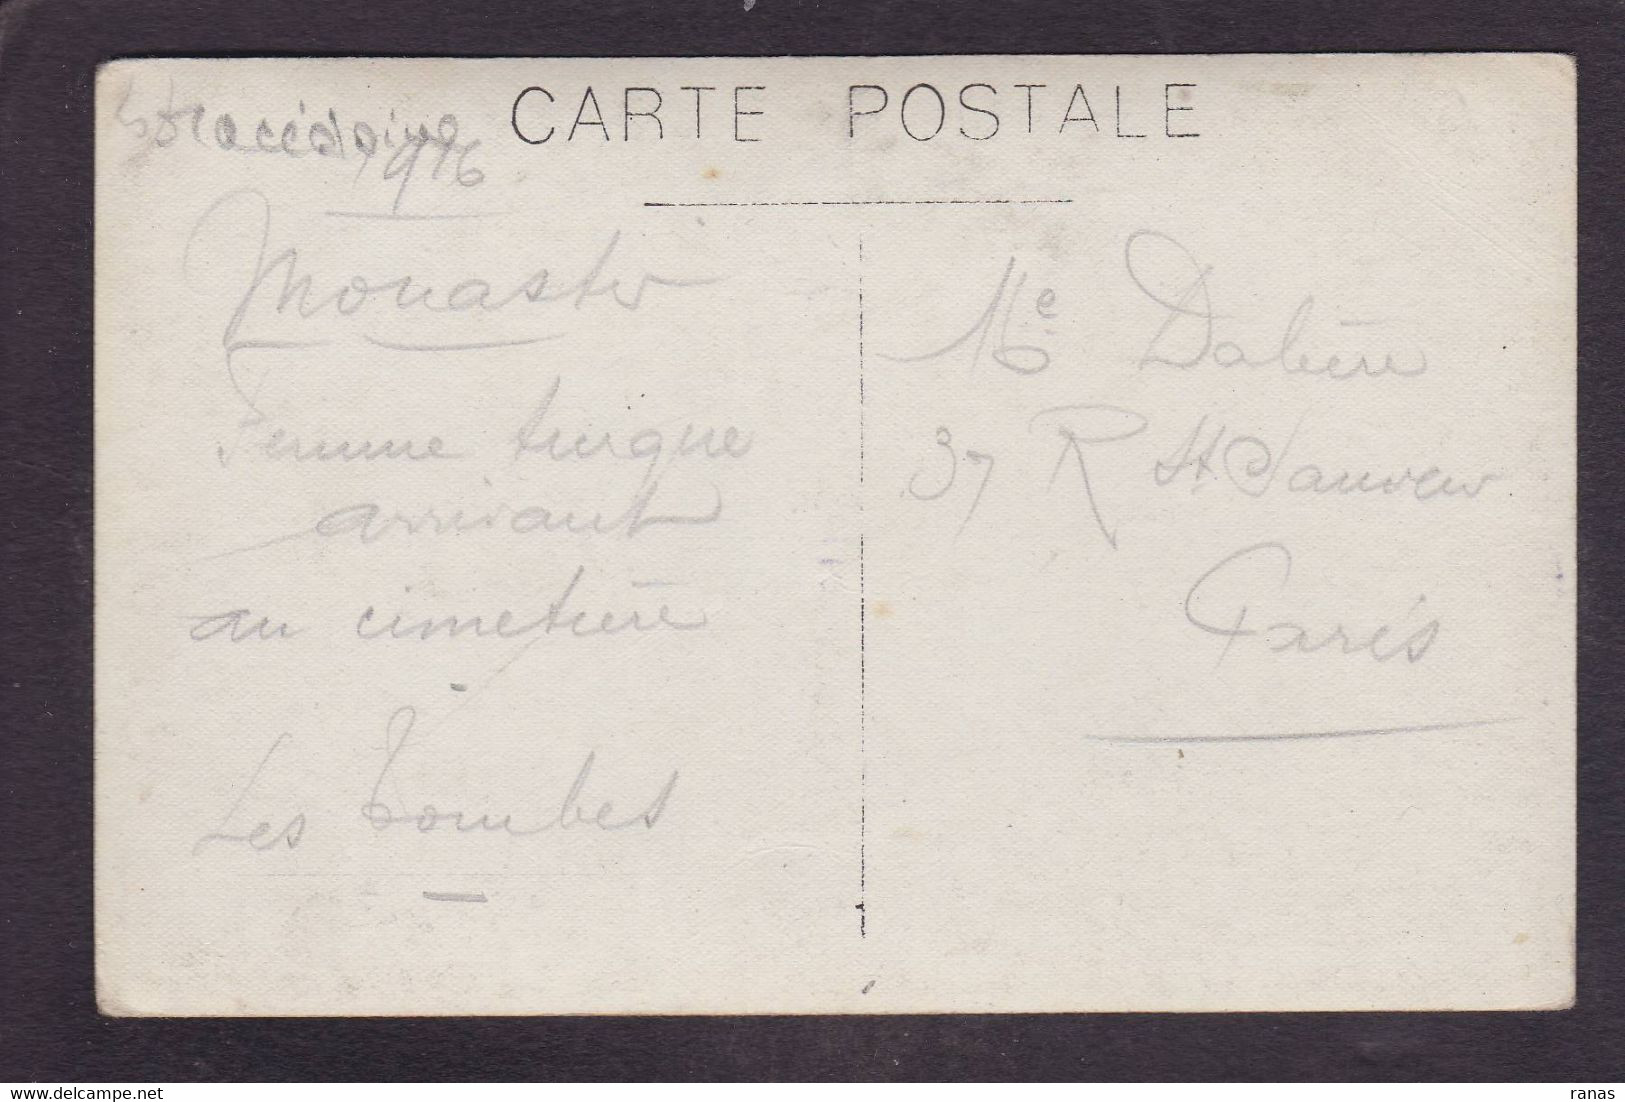 Macédoine
CARTE POSTALE
1916
Monastir
Femme turque
arrivant
au cimetière
Les Tombes
Me
37 R St Sauveur
Paris
ranas
delcampe.net